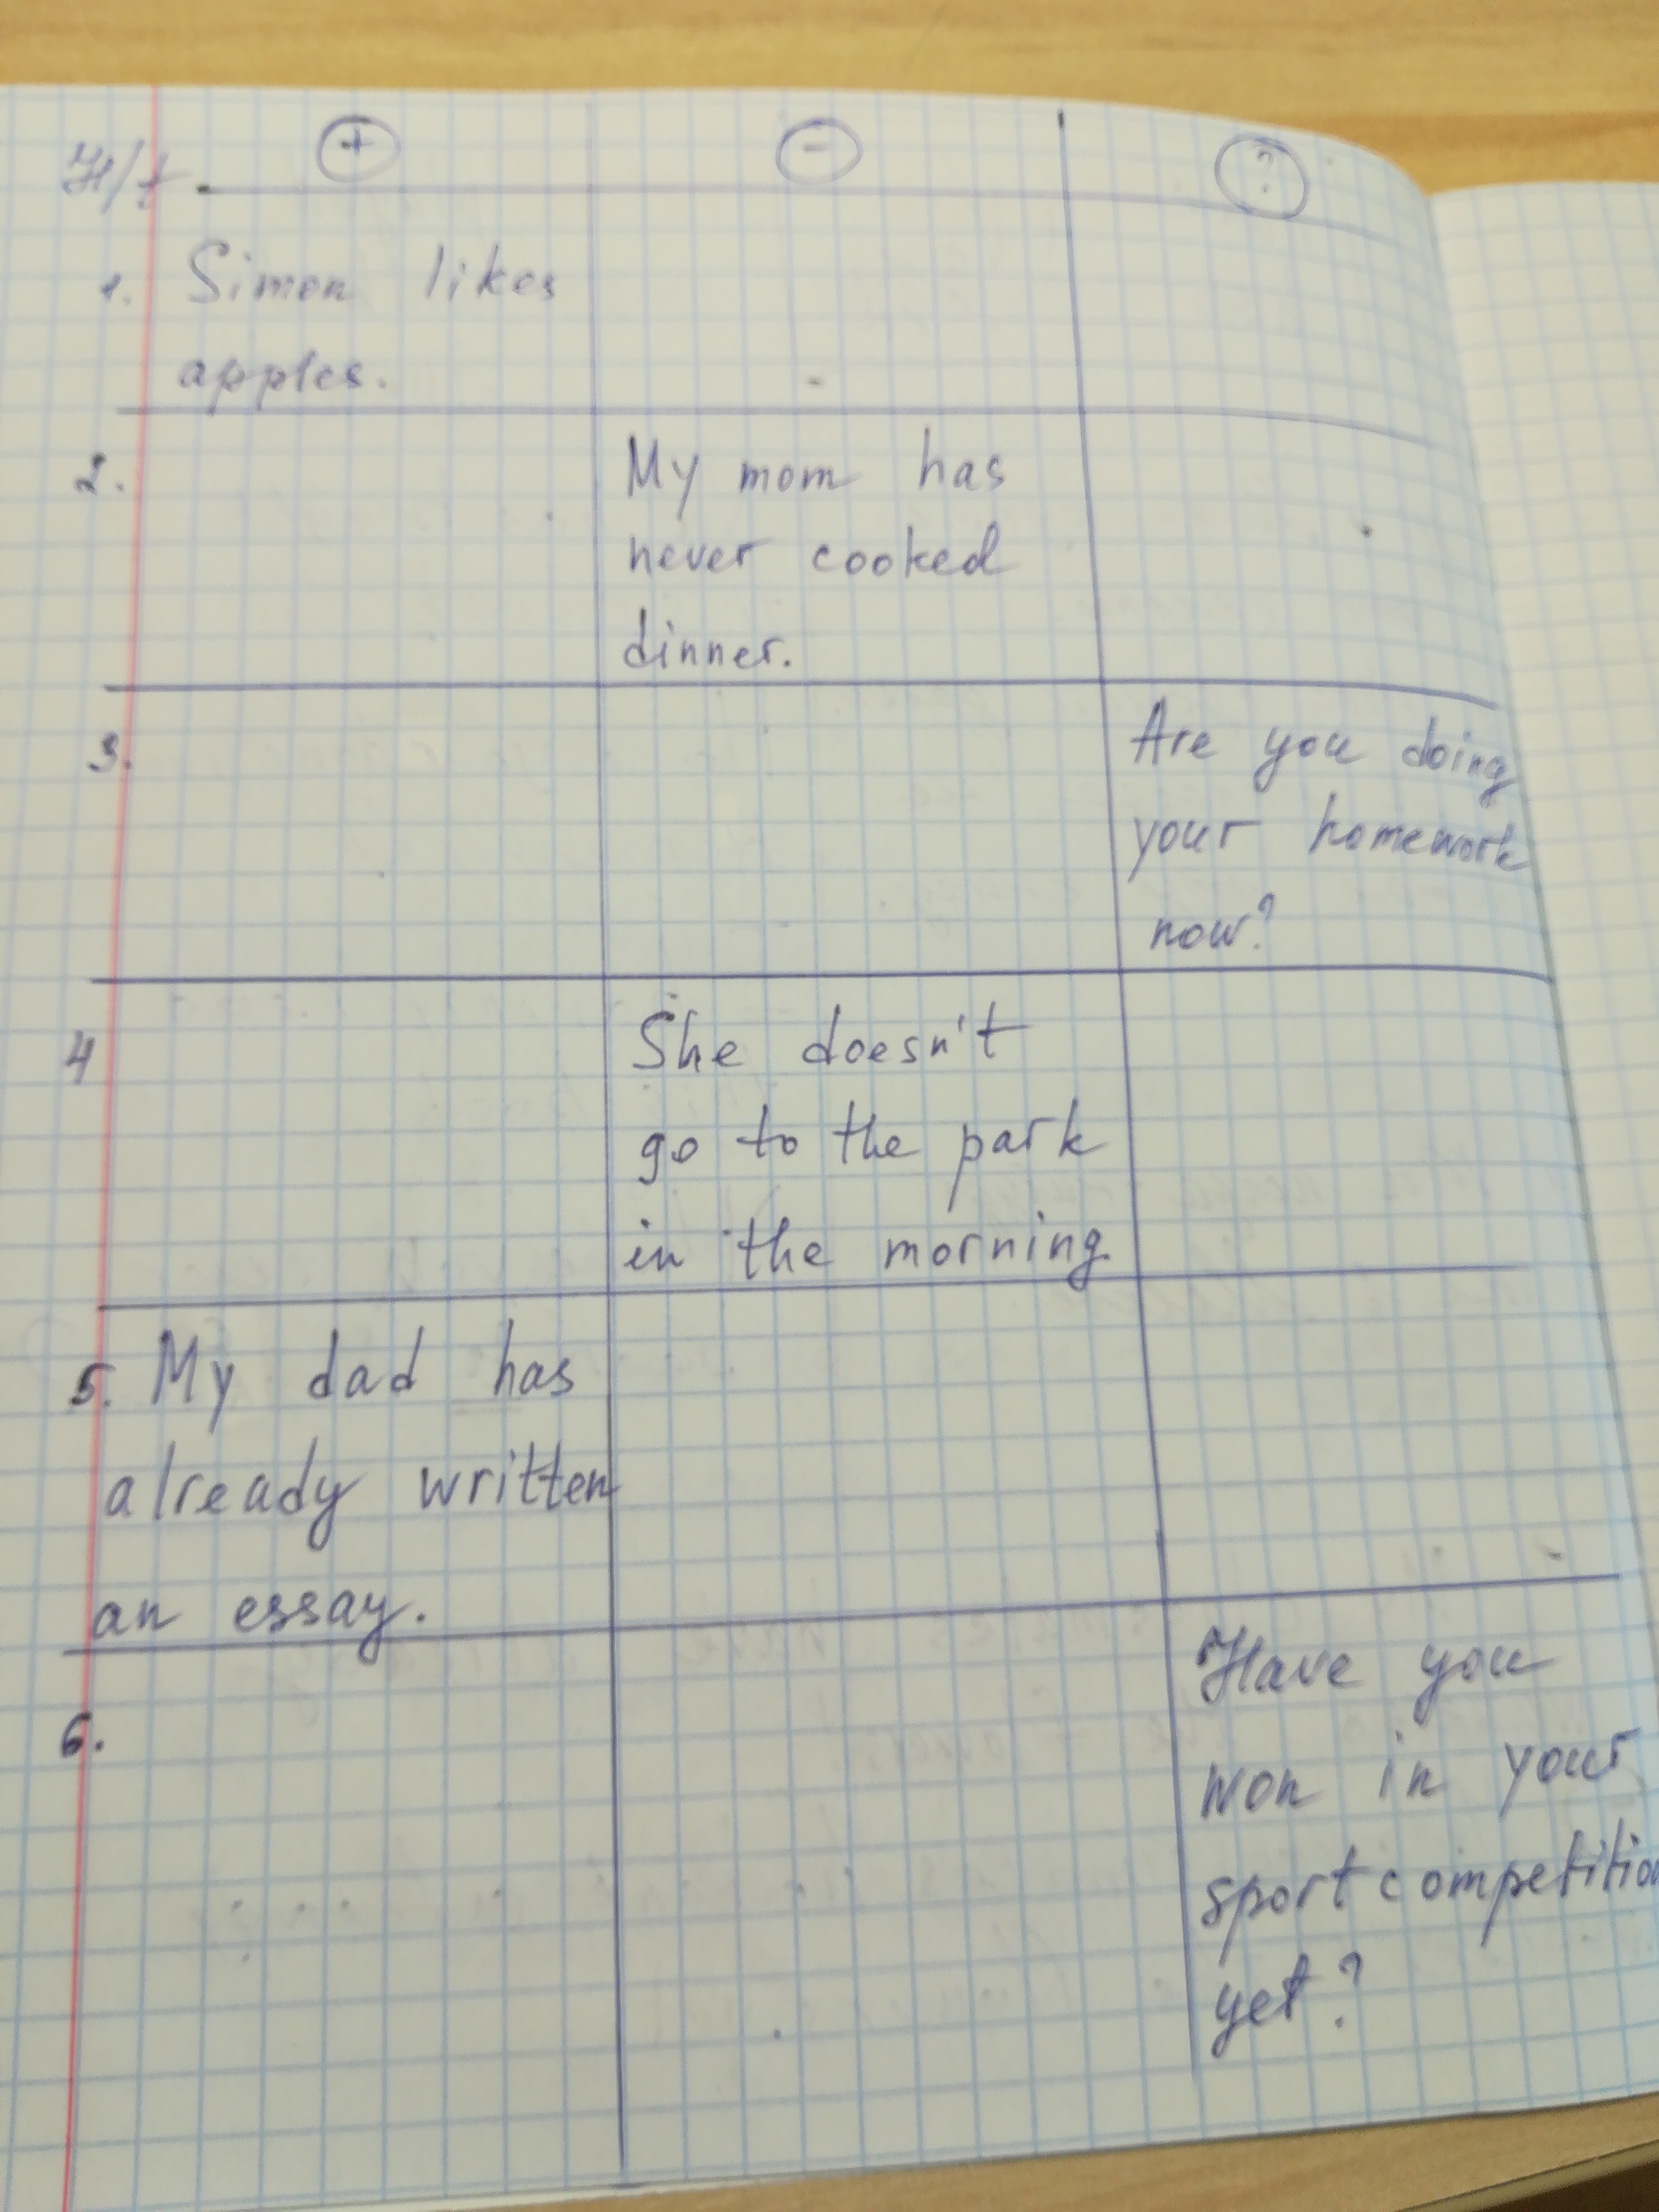 H/t + - ?
1. Simon likes
apples.
2. My mom has
never cooked
dinner.
3. Are you doing
your homework
now?
4 She doesn't
go to the park
in the morning.
5. My dad has
already written
an essay.
6. Have you
won in your
sport competition
yet?